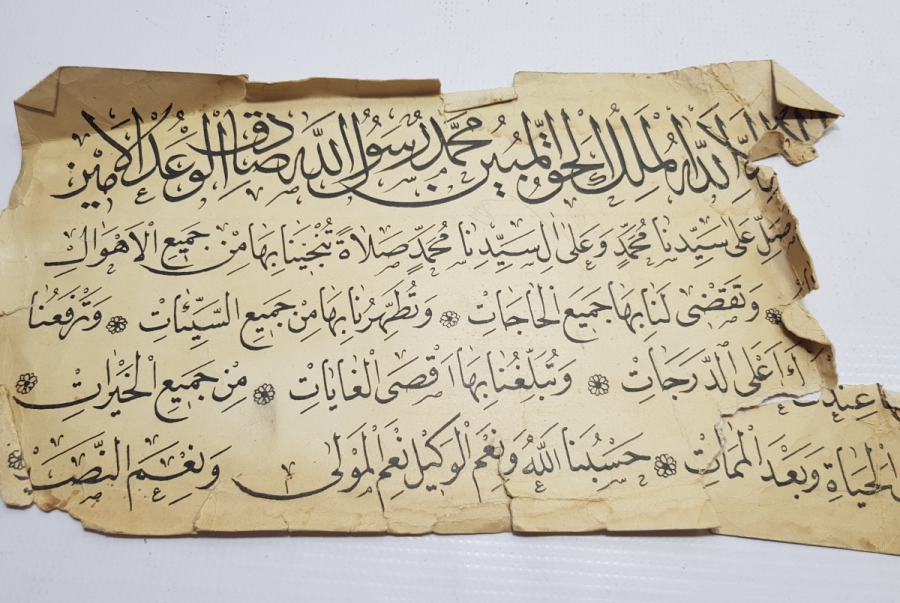 لا اله الا الله الملك الحق المبين محمد رسول الله صادق الوعد الامين
صل على سيدنا محمد وعلى ال سيدنا محمد صلاة تنجينا بها من جميع الاهوال
وتقضى لنا بها جميع الحاجات وتطهرنا بها من جميع السيئات وترفعنا
بها عندك اعلى الدرجات وتبلغنا بها اقصى الغايات من جميع الخيرات
الحياة وبعد الممات حسبنا الله ونعم الوكيل نعم المولى ونعم النصير